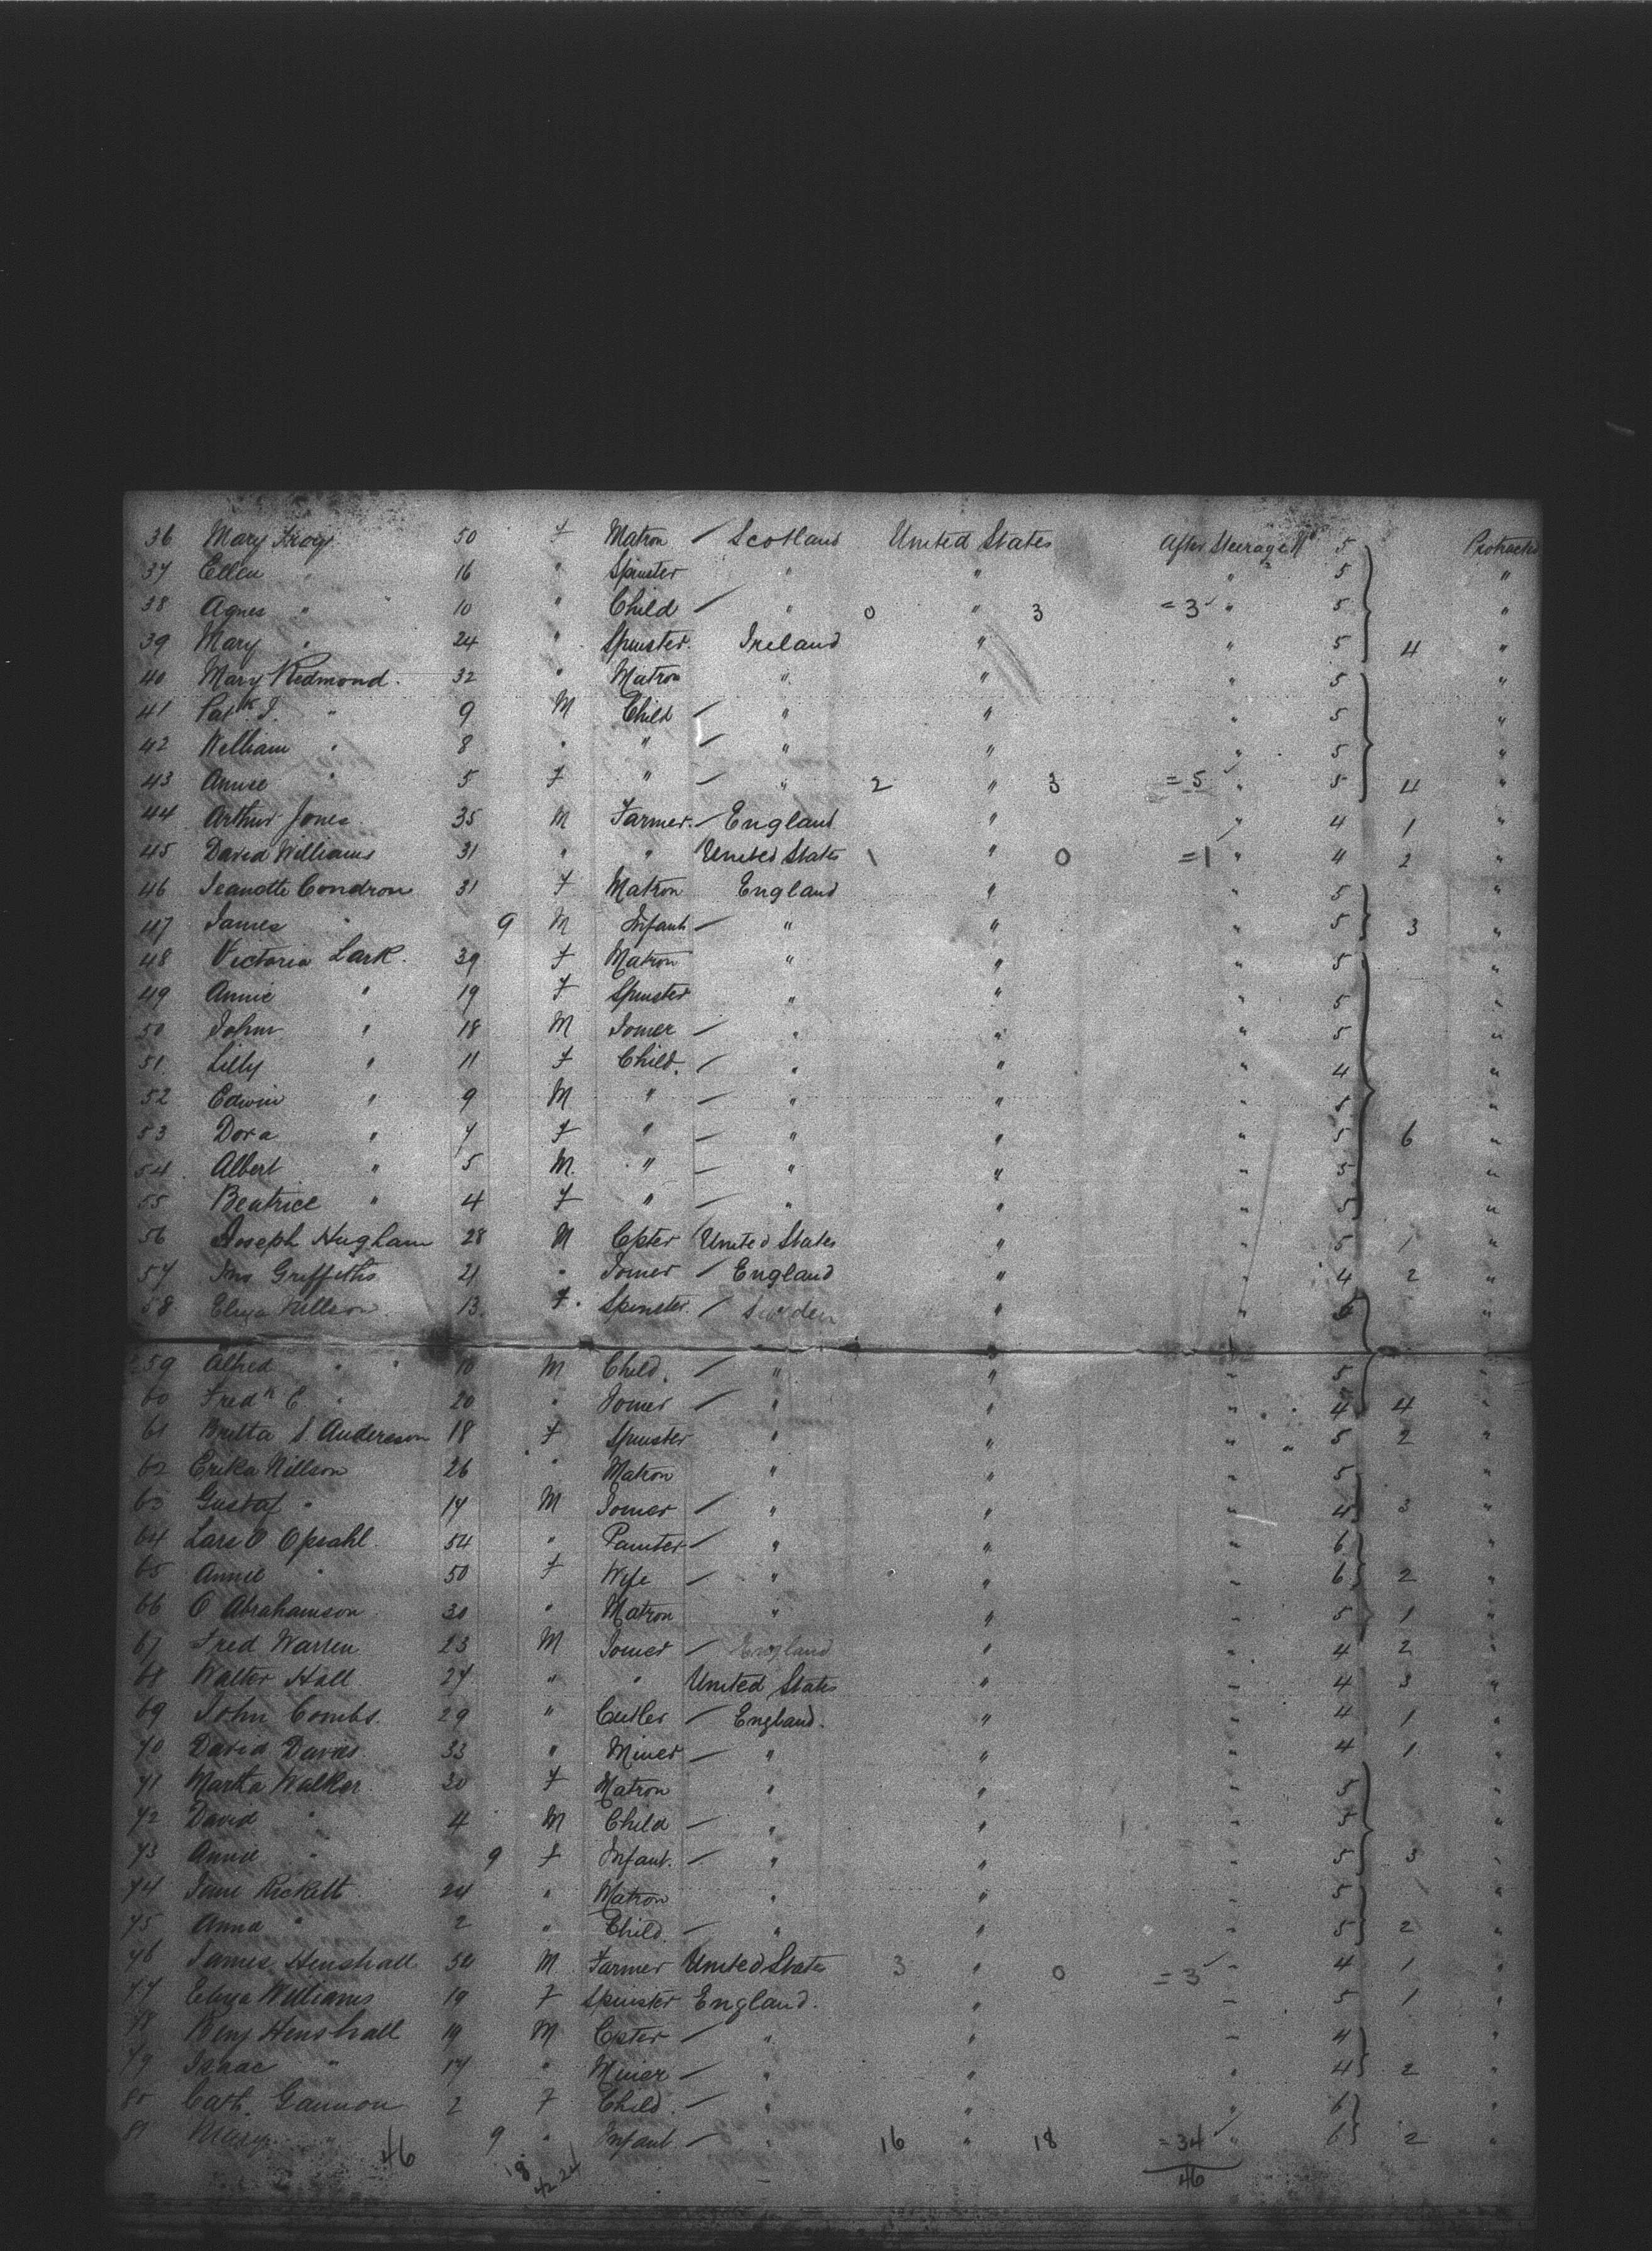 36 Mary Troy 50 F Matron / Scotland United States After Steerage 5 Protracted
37 Ellen " 16 " Spinster " " " 5 "
38 Agnes " 10 " Child / " 0 " 3 = 3 " 5 "
39 Mary " 24 " Spinster. Ireland " " 5 4 "
40 Mary Redmond. 32 " Matron " " " 5 "
41 Patk J. " 9 M Child / " " " 5 "
42 William " 8 " " / " " " 5 "
43 " 5 F " / " 2 " 3 = 5 " 5 4 "
44 Arthur Jones 35 M Farmer. / England " " 4 1 "
45 David Williams 31 " " United States 1 " 0 = 1 " 4 2 "
46 Jeanette Condron 31 F Matron England " " 5 "
47 James " 9 M Infant / " " " 5 3 "
48 Victoria Lark. 39 F Matron " " " 5 "
49 Annie " 19 F Spinster " " " 5 "
50 John " 18 M Joiner / " " " 5 "
51 Lilly " 11 F Child. / " " " 4 "
52 Edwin " 9 M " / " " " 5 "
53 Dora " 7 F " / " " " 5 6 "
54 Albert " 5 M. " / " " " 5 "
55 Beatrice " 4 F " / " " " 5 "
56 Joseph Hugham 28 M Cpter United States " " 5 1 "
57 Jno Griffiths 21 " Joiner / England " " 4 2 "
58 Eliza Nillson. 13. F. Spinster. / Sweden " " "
59 Alfred " " 10 M Child. / " " " 5 "
60 Fredk E " 20 " Joiner / " " " 4 4 "
61 Britta S Anderson 18 F Spinster " " " 5 2 "
62 Erika Nillson 26 " Matron " " " 5 "
63 Gustaf " 17 M Joiner / " " " 4 3 "
64 Lars O Opsahl. 54 " Painter / " " " 6 "
65 Annie " 50 F Wife / " " " 6 2 "
66 O Abrahamson 30 " Matron " " " 5 1 "
67 Fred Warren 23 M Joiner / England " " 4 2 "
68 Walter Hall 27 " " United States " " 4 3 "
69 John Combs. 29 " Cutler / England. " " 4 1 "
70 David Davies 33 " Miner / " " " 4 1 "
71 Martha Walker 30 F Matron " " " 5 "
72 David " 4 M Child / " " " 5 "
73 Annie " 9 F Infant. / " " " 5 3 "
74 Jane Rickett 24 " Matron " " " 5 "
75 Anna " 2 " Child. / " " " 5 2 "
76 James Henshall 50 M Farmer United States 3 " 0 = 3 " 4 1 "
77 Eliza Williams 19 F Spinster England. " " 5 1 "
78 Benj Henshall 19 M Cpter / " " " 4 "
79 Isaac " 17 " Miner / " " " 4 2 "
80 Cath. Gannon 2 F Child. / " " " 6 "
81 Mary " 9 " Infant / " 16 " 18 = 34 " 6 2 "
46 18 46